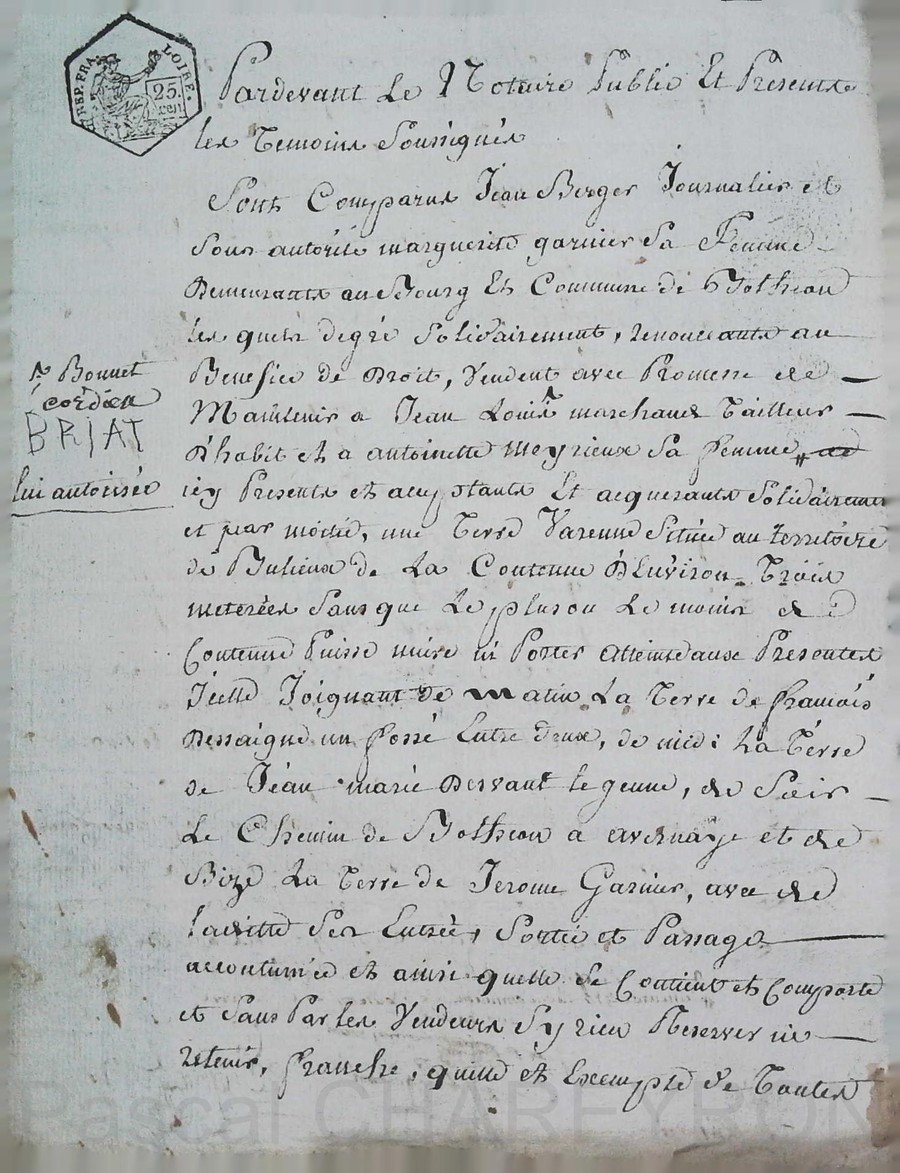 REP. FRA.
LOIRE.
25.
cen
Pardevant Le Notaire Public Et Presents
les Temoins Soussignés
Sont Comparus Jean Berger Journalier et
Sous autorité marguerite garnier Sa Femme
Demeurants au Bourg Et Commune de Botheon
les quels degré Solidairement, renonceants au
Benefice de Droit, Vendent avec Promesse de
Maintenir a Jean Louis marchand Tailleur
D'habit et a antoinette meyrieux Sa femme
icy Presents et acceptants Et acquerants Solidairement
et par moitié, une Terre Varenne Située au territoire
de Bulieux de La Contenue D'Environ Trois
meterées Sans que Le plus ou Le moins de
Contenue Puisse nuire ni Porter atteinte aux Presentes
Icelle Joignant De matin La Terre de francois
Dessaigne un fossé Entre deux, de midi La Terre
de Jean marie Dervant le jeune, de Soir
Le Chemin de Botheon a et de
Bize La Terre de Jerome Garnier, avec de
laditte Ses Entrée, Sortie et Passage
accoutumée et ainsi quelle Se Contient et Comporte
et Sans Par les Vendeurs Sy rien Reserver ni
retenir, franche, quitte et Exempte de Toutes
Bonnet
BRIAT
lui autorisée
Pascal CHAREYRON